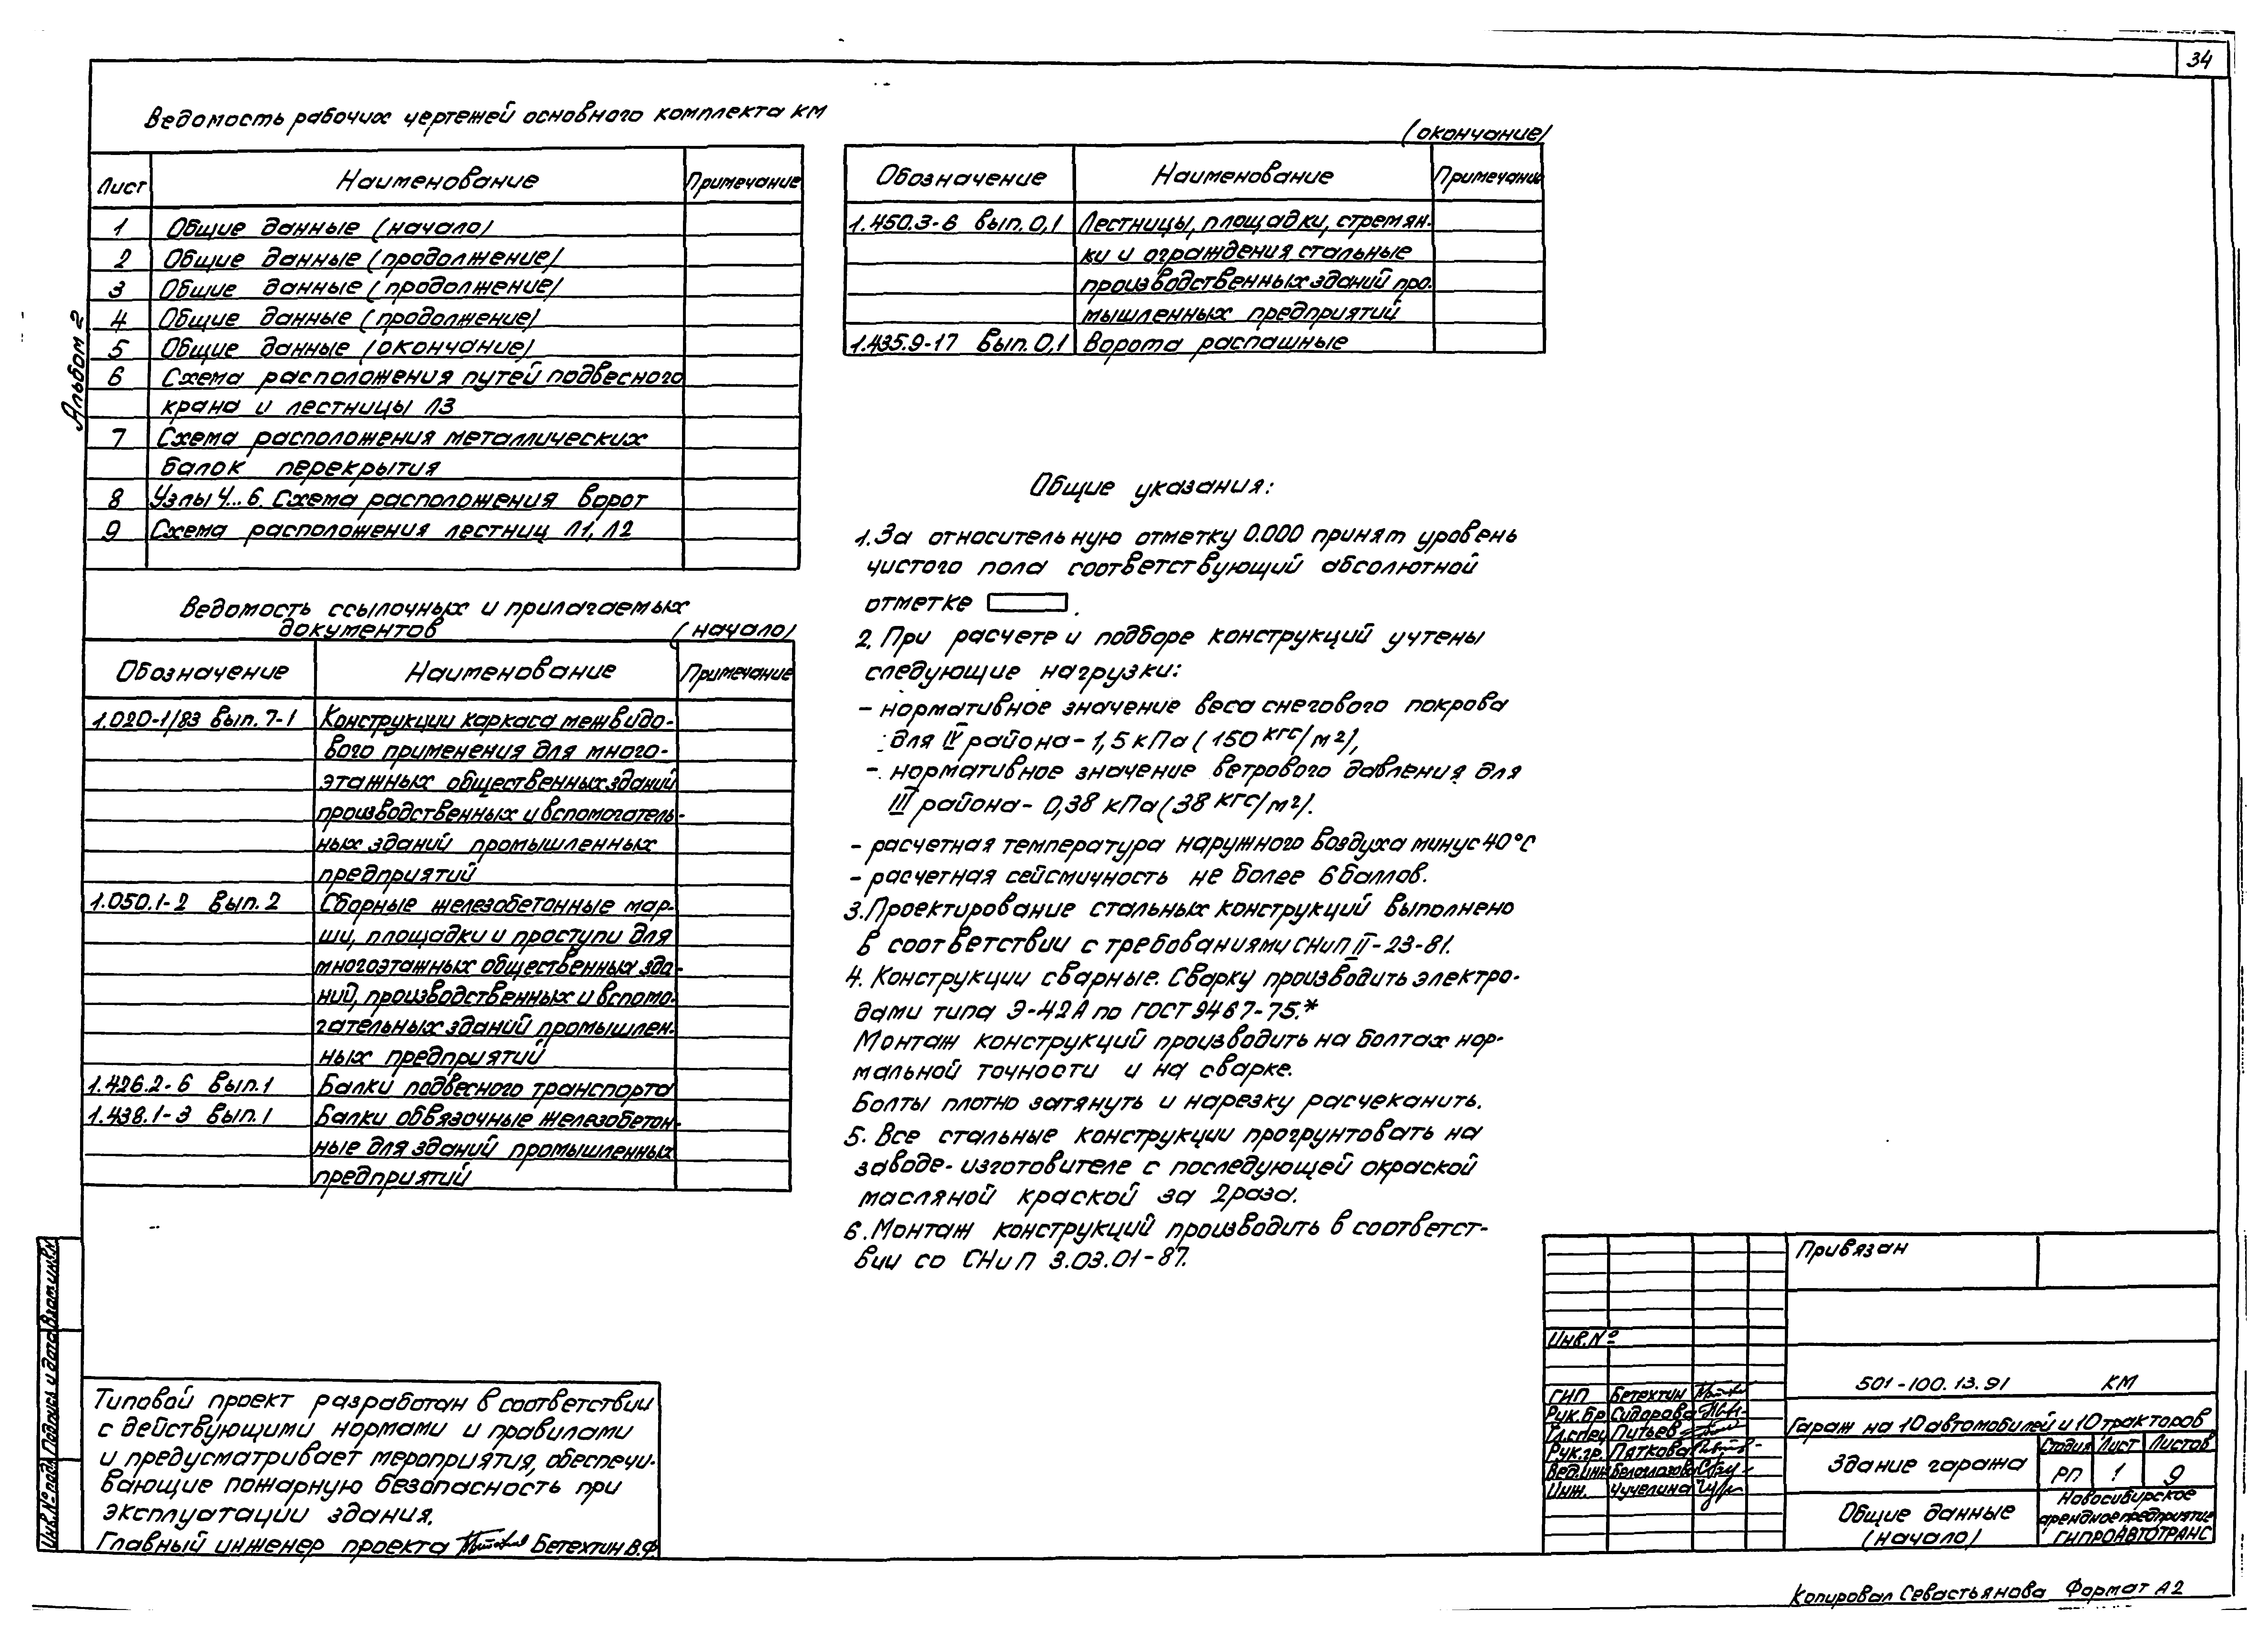 34
Альбом 2
Ведомость рабочих чертежей основного комплекта КМ
Лист Наименование Примечание
1 Общие данные (начало)
2 Общие данные (продолжение)
3 Общие данные (продолжение)
4 Общие данные (продолжение)
5 Общие данные (окончание)
6 Схема расположения путей подвесного
крана и лестницы Л3
7 Схема расположения металлических
балок перекрытия
8 Узлы 4...6. Схема расположения ворот
9 Схема расположения лестниц Л1, Л2
Ведомость ссылочных и прилагаемых
документов (начало)
Обозначение Наименование Примечание
1.020-1/83 вып. 7-1 Конструкции каркаса межвидо-
вого применения для много-
этажных общественных зданий
производственных и вспомогатель-
ных зданий промышленных
предприятий
1.050.1-2 вып. 2 Сборные железобетонные мар-
ши, площадки и проступи для
многоэтажных общественных зда-
ний, производственных и вспомо-
гательных зданий промышлен-
ных предприятий
1.426.2-6 вып. 1 Балки подвесного транспорта
1.438.1-3 вып. 1 Балки обвязочные железобетон-
ные для зданий промышленных
предприятий
(окончание)
Обозначение Наименование Примечание
1.450.3-6 вып. 0,1 Лестницы, площадки, стремян-
ки и ограждения стальные
производственных зданий про-
мышленных предприятий
1.435.9-17 вып. 0,1 Ворота распашные
Общие указания:
1. За относительную отметку 0.000 принят уровень
чистого пола соответствующий абсолютной
отметке .
2. При расчете и подборе конструкций учтены
следующие нагрузки:
- нормативное значение веса снегового покрова
для IV района - 1,5 кПа (150 кгс/м²),
- нормативное значение ветрового давления для
III района - 0,38 кПа (38 кгс/м²).
- расчетная температура наружного воздуха минус 40°С
- расчетная сейсмичность не более 6 баллов.
3. Проектирование стальных конструкций выполнено
в соответствии с требованиями СНиП II-23-81.
4. Конструкции сварные. Сварку производить электро-
дами типа Э-42А по ГОСТ 9467-75.*
Монтаж конструкций производить на болтах нор-
мальной точности и на сварке.
Болты плотно затянуть и нарезку расчеканить.
5. Все стальные конструкции прогрунтовать на
заводе-изготовителе с последующей окраской
масляной краской за 2 раза.
6. Монтаж конструкций производить в соответст-
вии со СНиП 3.03.01-87.
Инв. № подл. Подпись и дата Взам. инв. №
Типовой проект разработан в соответствии
с действующими нормами и правилами
и предусматривает мероприятия, обеспечи-
вающие пожарную безопасность при
эксплуатации здания.
Главный инженер проекта Бетехтин В.Ф.
Привязан
Инв. №
501-100.13.91 КМ
ГИП Бетехтин
Рук. бр. Сидорова
Гл. спец Питьев
Рук. гр. Пяткова
Вед. инж Белоглазова
Инж. Чучелина
Гараж на 10 автомобилей и 10 тракторов
Здание гаража
Стадия Лист Листов
РП 1 9
Общие данные
(начало)
Новосибирское
арендное предприятие
ГИПРОАВТОТРАНС
Копировал Севастьянова Формат А2